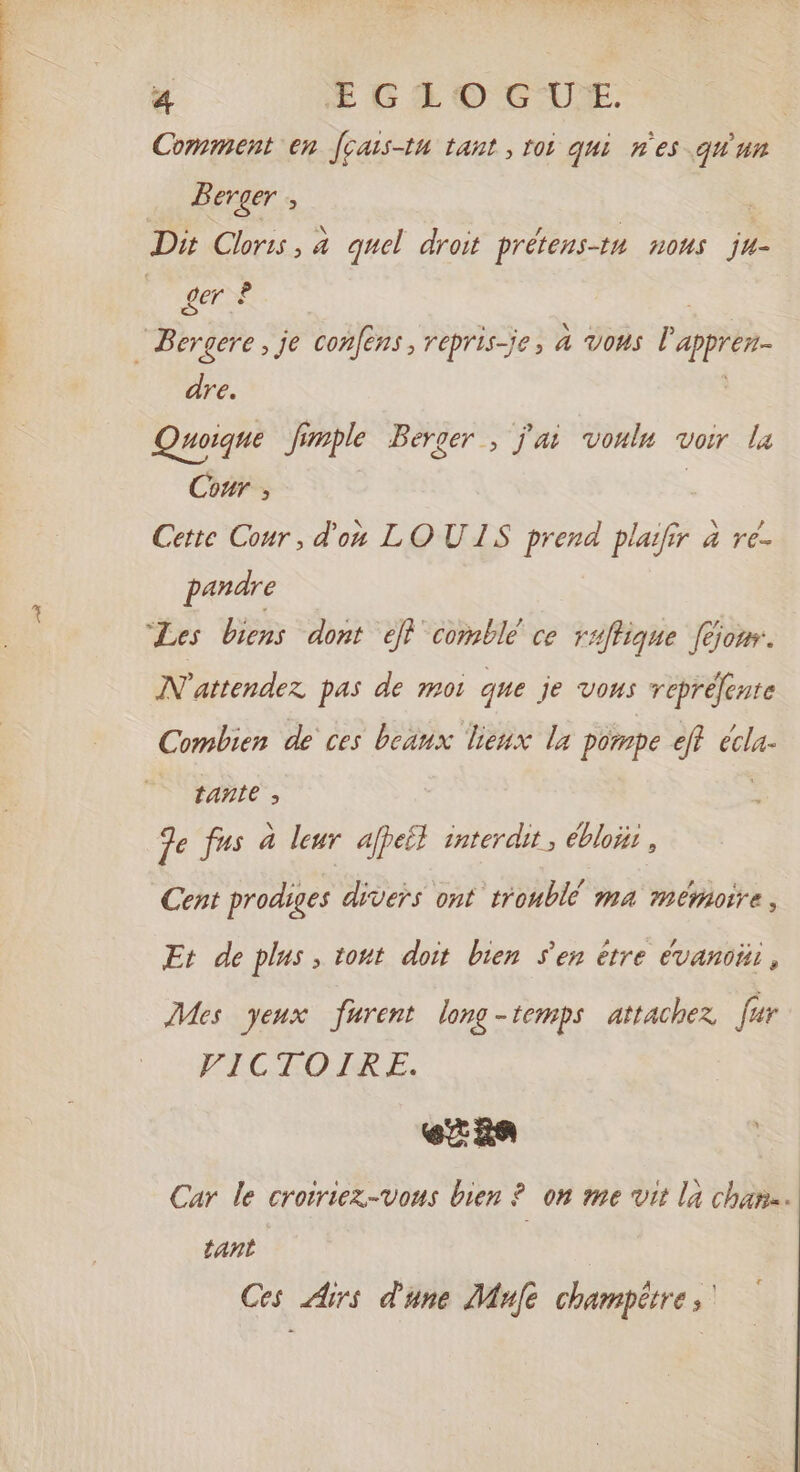 4 EGLOGUE.
Comment en ſçais-tu tant, toi qui n'es qu'un
Berger,
Dit Cloris, à quel droit prétens-tu nous ju-
ger ?
Bergere, je conſens, repris-je, à vous l'appren-
dre.
Quoique ſimple Berger, j'ai voulu voir la
Cour,
Cette Cour, d'où LOUIS prend plaiſir à ré-
pandre
Les biens dont eſt comblé ce ruſtique ſéjour.
N'attendez pas de moi que je vous repréſente
Combien de ces beaux lieux la pompe eſt écla-
tante,
Je fus à leur aſpect interdit, ébloüi,
Cent prodiges divers ont troublé ma mémoire,
Et de plus, tout doit bien s'en être évanoüi,
Mes yeux furent long-temps attachez ſur
VICTOIRE.
Car le croiriez-vous bien ? on me vit là chan-
tant
Ces Airs d'une Muſe champêtre,